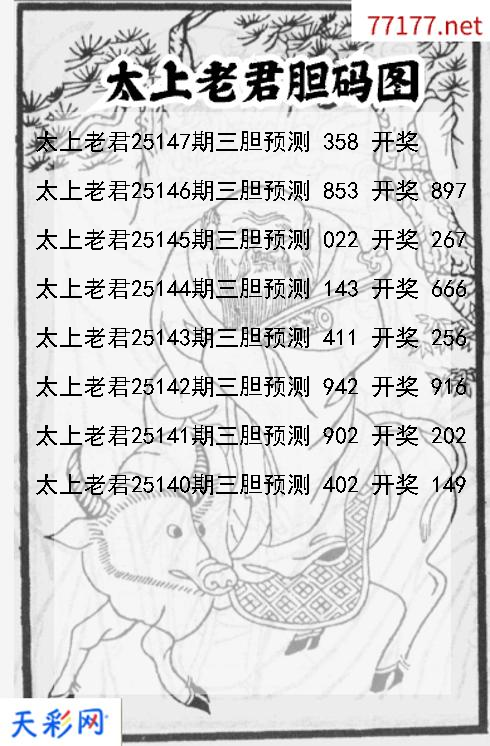 77177.net
太上老君胆码图
太上老君25147期三胆预测 358 开奖
太上老君25146期三胆预测 853 开奖 897
太上老君25145期三胆预测 022 开奖 267
太上老君25144期三胆预测 143 开奖 666
太上老君25143期三胆预测 411 开奖 256
太上老君25142期三胆预测 942 开奖 916
太上老君25141期三胆预测 902 开奖 202
太上老君25140期三胆预测 402 开奖 149
天彩网